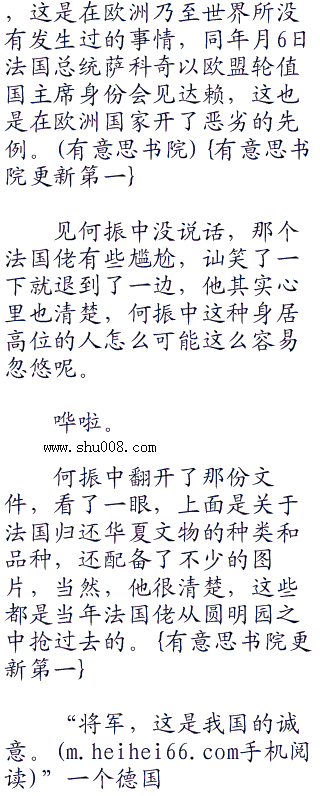 ，这是在欧洲乃至世界所没
有发生过的事情，同年月6日
法国总统萨科奇以欧盟轮值
国主席身份会见达赖，这也
是在欧洲国家开了恶劣的先
例。(有意思书院){有意思书
院更新第一}
见何振中没说话，那个
法国佬有些尴尬，讪笑了一
下就退到了一边，他其实心
里也清楚，何振中这种身居
高位的人怎么可能这么容易
忽悠呢。
哗啦。
www.shu008.com
何振中翻开了那份文
件，看了一眼，上面是关于
法国归还华夏文物的种类和
品种，还配备了不少的图
片，当然，他很清楚，这些
都是当年法国佬从圆明园之
中抢过去的。{有意思书院更
新第一}
“将军，这是我国的诚
意。(m.heihei66.com手机阅
读)”一个德国